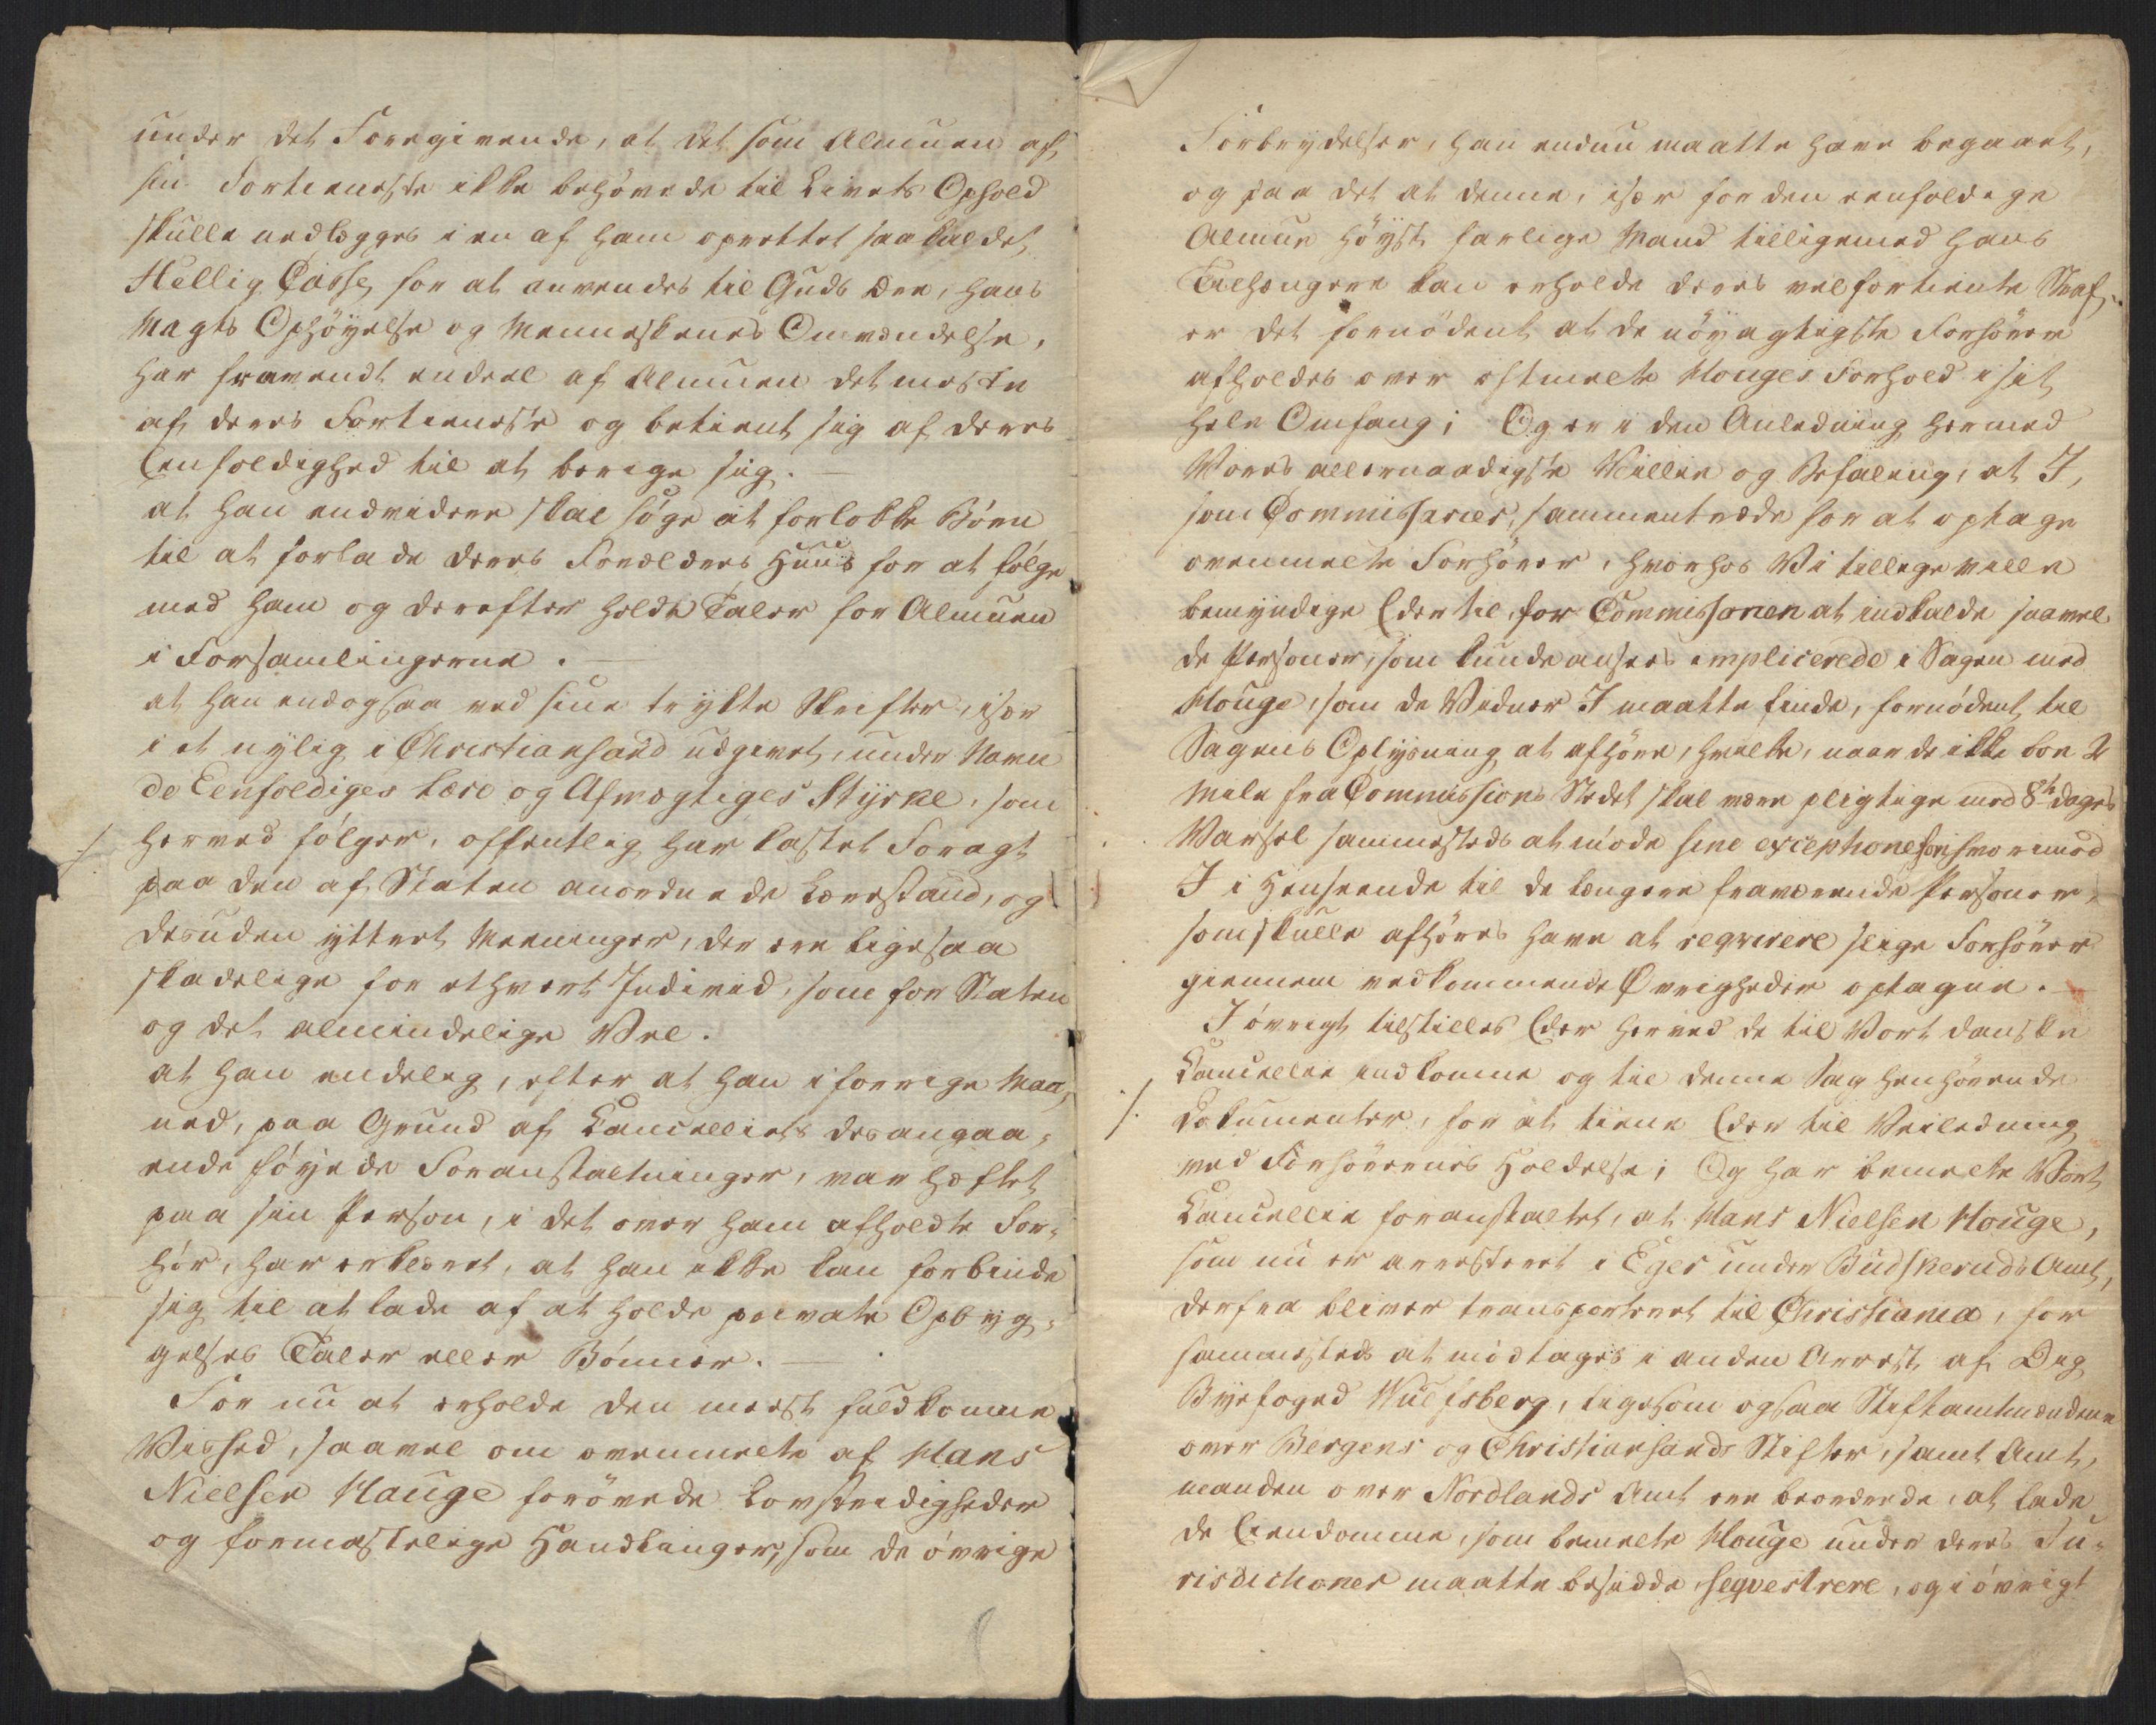 under det Foregivende, at det som Almuen af
sin Fortieneste ikke behøvede til Livets Ophold
skulle nedlægges i en af ham oprettet saa kaldet
Hellig Casse, for at anvendes til Guds Ære, hans
Magts Ophöyelse og Menneskenes Omvendelse,
har fravendt endeel af Almuen det meste
af deres Fortieneste og betient sig af deres
Eenfoldighed til at berige sig. —
at han endvidere skal söge at forlokke Börn
til at forlade deres Forældres Huus for at fölge
med ham og derefter holde Taler for Almuen
i Forsamlingerne. —
at han endogsaa ved sine trykte Skrifter, især
i et nylig i Christiansand udgivet, under Navn
de Eenfoldiges Lære og Afmægtiges Styrke, som
./. herved fölger, offentlig har kastet Foragt
paa den af Staten anordnede Lærestand, og
desuden yttret Meeninger, der ere ligesaa
skadelige for ethvert Individ, som for Staten
og det almindelige Vel.
at han endelig, efter at han i forrige Maa-
ned, paa Grund af Cancelliets desangaa-
ende föyede Foranstaltninger, var hæftet
paa sin Person, i det over ham afholdte For-
hör, har erklæret, at han ikke kan forbinde
sig til at lade af at holde private Opbyg-
gelses Taler eller Bönner. —
For nu at erholde den meest fuldkomne
Vished, saavel om ovenmelte af Hans
Nielsen Hauge forövede Lovstridigheder
og formastelige Handlinger, som de övrige
Forbrydelser, han endnu maatte have begaaet,
og paa det at denne, især for den eenfoldige
Almue höyst farlige Mand tilligemed hans
Tilhængere kan erholde deres velfortiente Straf,
er det fornödent at de nöyagtigste Forhörer
afholdes over oftmelte Houges Forhold i sit
hele Omfang; Og er i den Anledning hermed
Vores allernaadigste Villie og Befaling, at I,
som Commissarier, sammentræde for at optage
ovenmelte Forhörer, hvorhos Vi tillige ville
bemyndige Eder til, for Commissionen at indkalde saavel
de Personer, som kunde ansees implicerede i Sagen med
Houge, som de Vidner I maatte finde, fornödent til
Sagens Oplysning at afhöre, hvilke, naar de ikke boe 2
Mile fra Commissions Stedet skal være pligtige med 8te dages
Varsel sammesteds at möde sine exceptione fori hvorimod
I i Henseende til de længere fraværende Personer,
som skulle afhöres have at reqvirere slige Forhörer
giennem vedkommende Øvrigheder optagne. —
I övrigt tilstilles Eder herved de til Vort danske
Cancellie indkomne og til denne Sag henhörende
./. Dokumenter, for at tiene Eder til Veiledning
ved Forhörernes Holdelse; Og har bemelte Vort
Cancellie foranstaltet, at Hans Nielsen Houge,
som nu er arresteret i Eger under Budskeruds Amt,
derfra bliver transporteret til Christiania, for
sammesteds at modtages i anden Arrest af Dig
Byefoged Wulfsberg, ligesom ogsaa Stiftamtmændene
over Bergens og Christiansands Stifter, samt Amt-
manden over Nordlands Amt ere beordrede, at lade
de Eiendomme, som bemelte Houge under deres Ju-
risdictioner maatte besidde, seqvestrere, og i övrigt